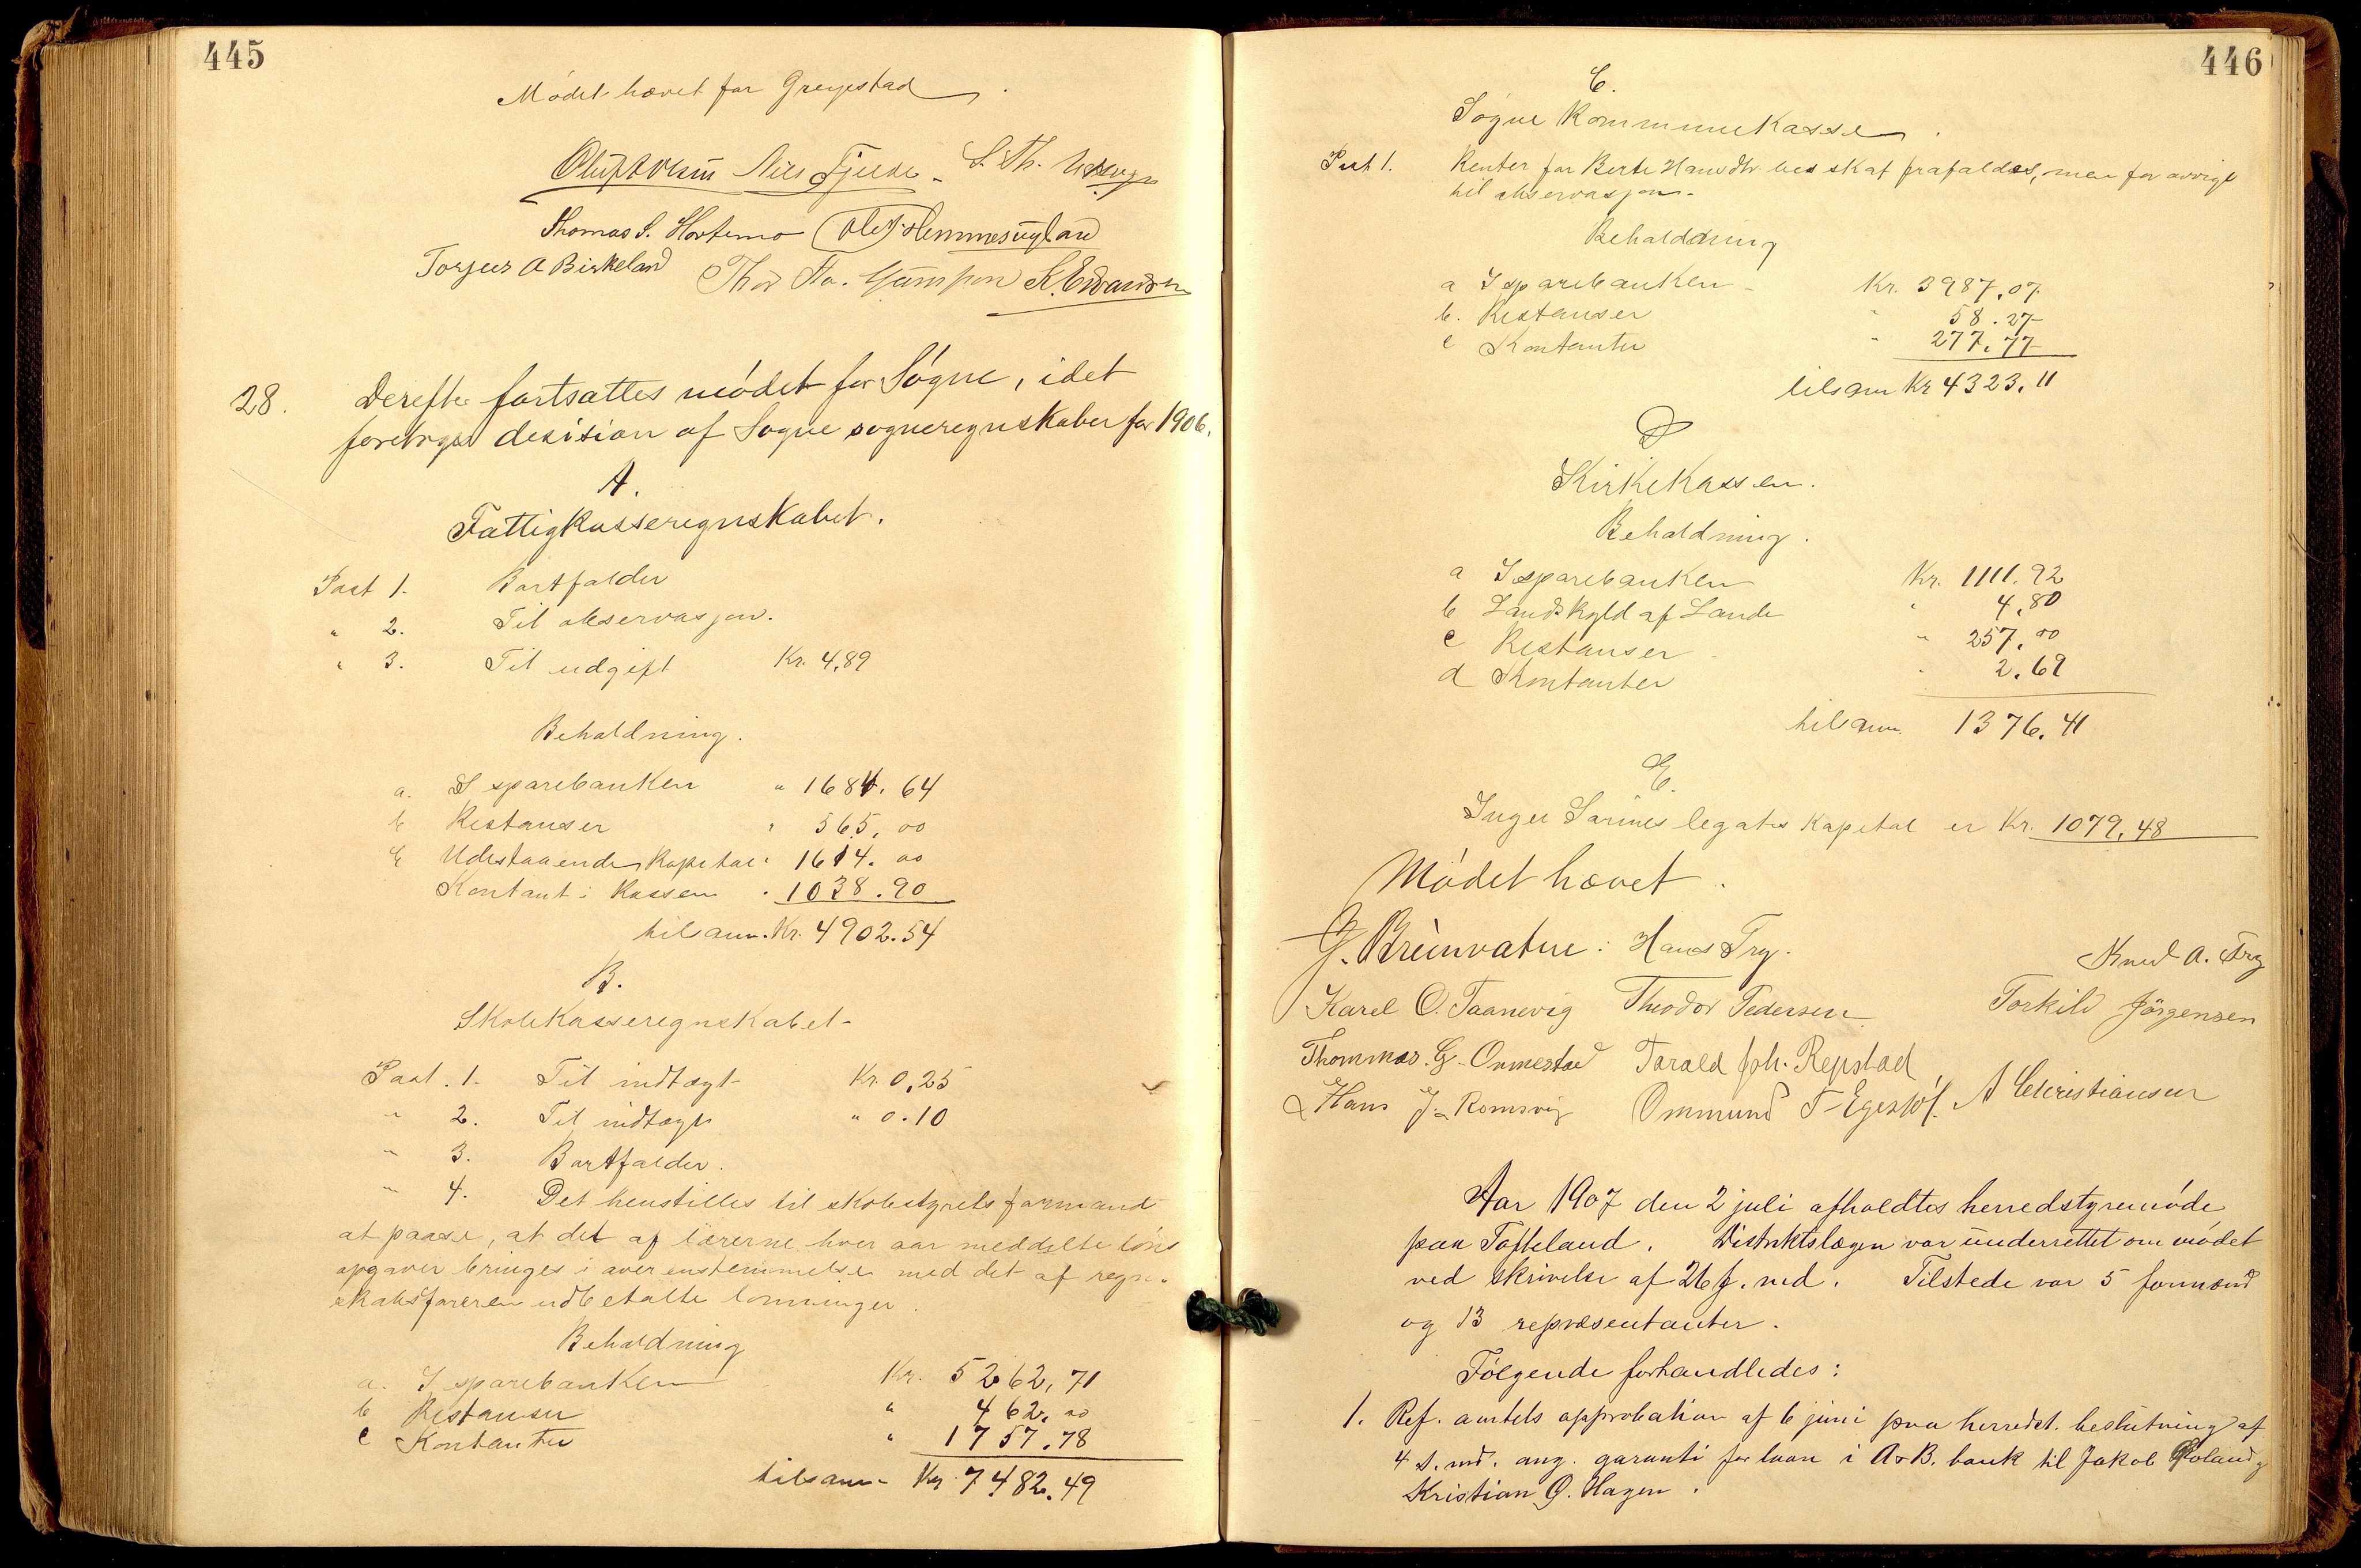 445
Mødet hævet for Greipstad
Nils Fjelde S. Th.
Thomas S. Hortemo Ole J. Hemmesugland
Torjus A Birkeland Thor To. Gumpen K. Edvardsen
28. Derefter fortsattes mødet for Søgne, idet
foretoges desision af Søgne sogneregnskaber for 1906.
A.
Fattigkasseregnskabet.
Post 1. Bortfalder
" 2. Til observasjon.
" 3. Til udgift Kr. 4,89
Beholdning.
a. I sparebanken " 1684. 64
b Restanser " 565. 00
c Udestaaende kapital " 1614. 00
Kontant i kassen " 1038. 90
tilsam. Kr. 4902.54
B.
Skolekasseregnskabet-
Post. 1. Til indtægt Kr. 0,25
" 2. Til indtægt " 0.10
" 3. Bortfalder.
" 4. Det henstilles til skolestyrets formand
at paase, at det af lærerne hver aar meddelte løns
opgaver bringes i overensstemmelse med det af regn-
skabsføreren udbetalte lønninger.
Beholdning
a. I sparebanken Kr. 5262,71
b Restanser " 462. 00
c Kontanter " 1757.78
tilsam- Kr. 7482.49
446
C.
Søgne Kommunekasse.
Post 1. Renter for Berte Hansdtr. skat frafaldes, men for øvrigt
til observasjon.
Beholdning
a I sparebanken Kr. 3987.07
b. Restanser " 58.27
c Kontanter " 277.77
tilsam Kr 4323.11
D
Kirkekassen.
Beholdning.
a I sparebanken Kr. 1111.92
b Landskyld af Lande " 4,80
c Restanser " 257.00
d Kontanter " 2.69
tilsam. 1376.41
E.
Inger Sarines legats kapital er Kr. 1079.48
Mødet hævet.
G. Bruunvatne. Hans Try. Knud A. Try
Karel O. Taanevig Theodor Pedersen Torkild Jörgensen
Thommas. G. Ormestad Tarald Joh. Repstad
Hans J. Romsvig Ommund T. Egeskøl. A Christiansen
Aar 1907 den 2 juli afholdtes herredstyremøde
paa Tofteland. Distriktslægen var underrettet om mødet
ved skrivelse af 26 f. md. Tilstede var 5 formænd
og 13 repræsentanter.
Følgende forhandledes:
1. Ref. amtets approbation af 6 juni paa herredst. beslutning af
4 s. md. ang. garanti for laan i A&B. bank til Jakob Roland og
Kristian G. Hagen.